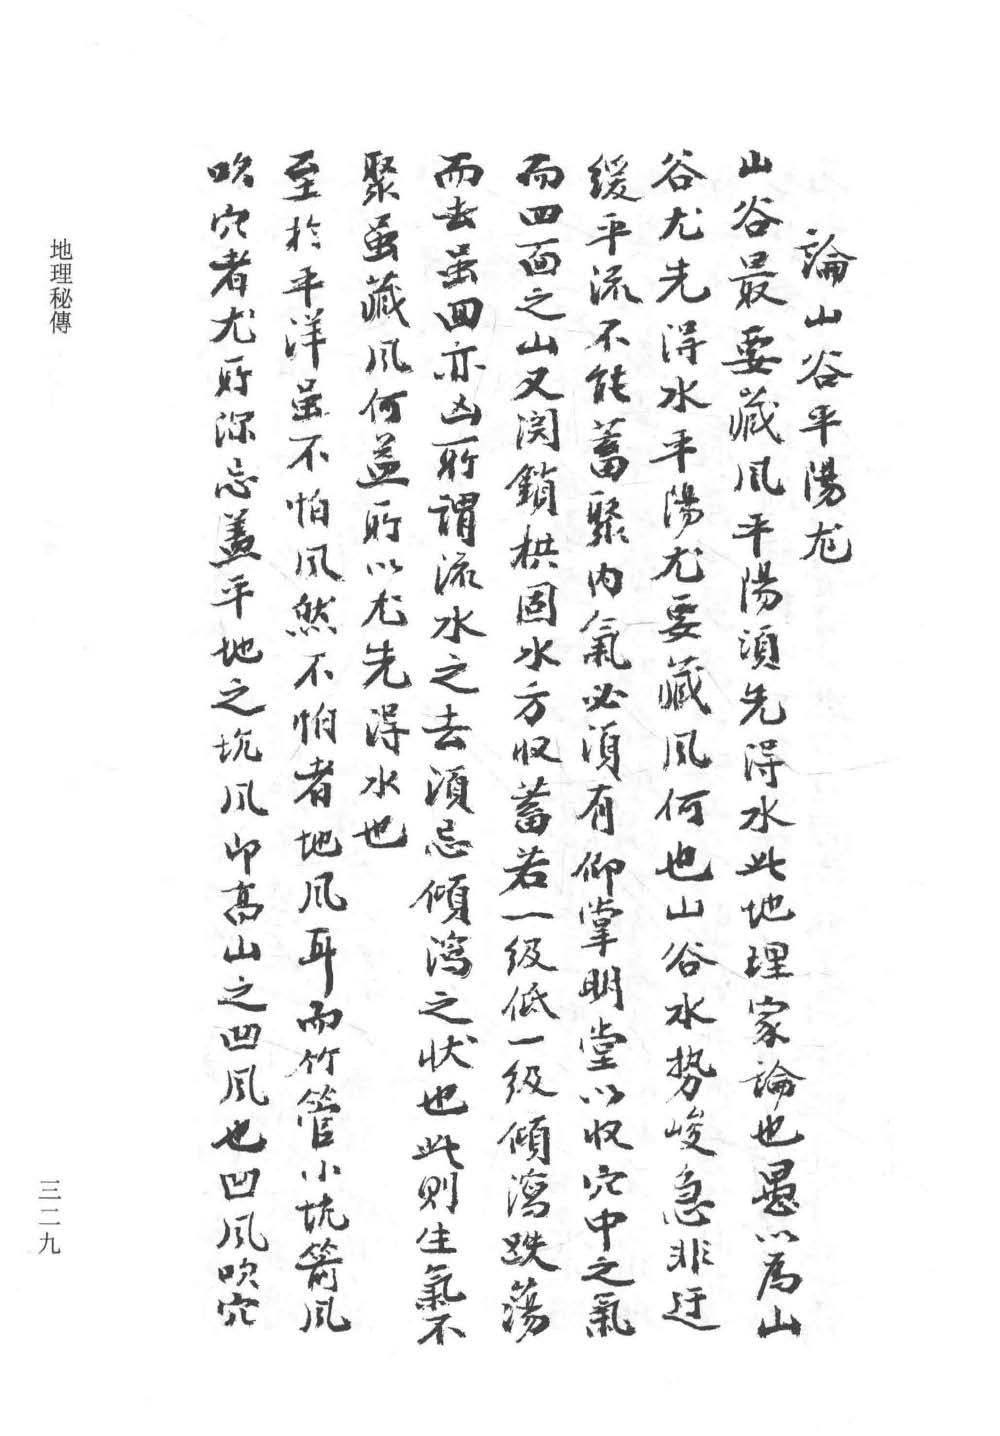 論山谷平陽尤
山谷最要藏风平陽湏先淂水此地理家論也愚以為山
谷尤先淂水平陽尤要藏风何也山谷水势峻急非迂
缓平流不能蓄聚内氣必湏有仰掌明堂以収穴中之氣
而四面之山又関鎖栱固水方収蓄若一级低一级傾瀉跌蕩
而去虽回亦凶所謂流水之去湏忌傾瀉之状也此則生氣不
聚虽藏风何益所以尤先淂水也
至於平洋虽不怕风然不怕者地风耳而竹管小坑箭风
吹穴者尤所深忌盖平地之坑风即高山之凹风也凹风吹穴
地理秘傳
三二九